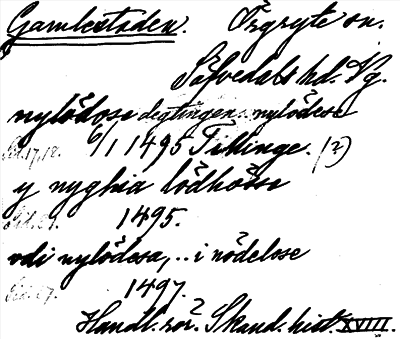 Gamlestaden. Örgryte sn.
Säfvedals hd. Vg.
nylödose degtingen.. nylödese
Sid. 17, 18. 6/1 1495 Tillinge. (?)
y nyghia lödhösse
Sid. 21. 1495.
vdi nylödesa,.. i nödelose
Sid. 27. 1497.
Handl. rör. Skand. hist. XVIII.